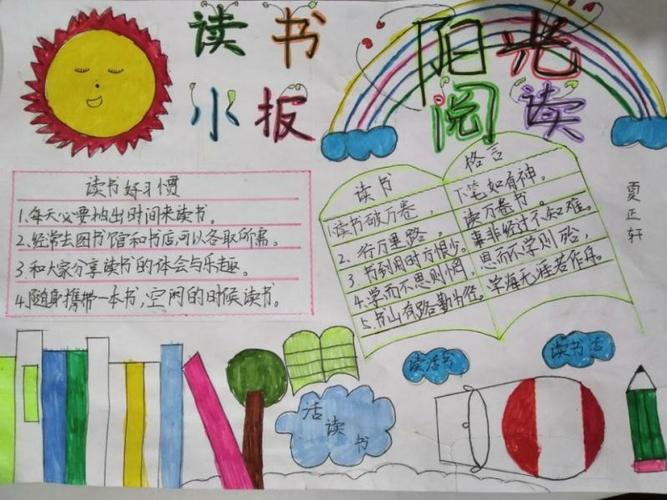 读书
小扳
阳光
阅读
读书好习惯
1.每天必要抽出时间来读书。
2.经常去图书馆和书店,可以各取所需。
3.和大家分享读书的体会与乐趣。
4.随身携带一本书,空闲的时候读书。
读书 格言
1.读书破万卷， 下笔如有神。
2.行万里路， 读万卷书。
3.书到用时方恨少。 事非经过不知难。
4.学而不思则惘， 思而不学则殆，
5.书山有路勤为径。学海无涯苦作舟。
夏正轩
读活书
读书活
活读书